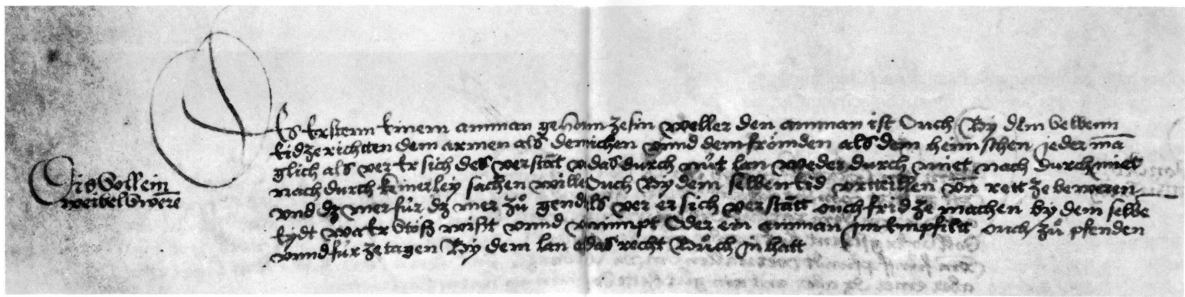 Dis Soll ein
weibel Swere
Des Ersten Einem amman gehorsam ze sin weller den amman ist Ouch By dem selbenn
Eid ze richten dem armen als dem richen unnd dem frömden als dem heimschen jeder mā
glich als ver Er sich des verstāt und das durch nüt lan weder durch miet nach durch
nach durch keinerley sachen wille Ouch By dem selben Eid urteillen un rett ze bewaren
vnd dz mer für dz mer zů gend als ver er sich verstātt ouch frid ze machen by dem selbē
Eydt wa Er stöß wüst unnd vernimpt Oder ein amman Im Empfilcht ouch zů pfenden
unnd für ze tagen By dem lan das recht Bůch In hatt